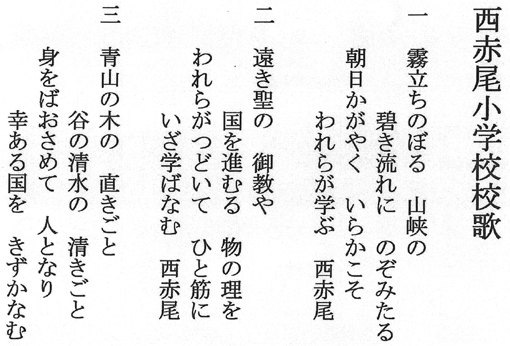 西赤尾小学校校歌
一 霧立ちのぼる 山峡の
碧き流れに のぞみたる
朝日かがやく いらかこそ
われらが学ぶ 西赤尾
二 遠き聖の 御教や
国を進むる 物の理を
われらがつどいて ひと筋に
いざ学ばなむ 西赤尾
三 青山の木の 直きごと
谷の清水の 清きごと
身をばおさめて 人となり
幸ある国を きずかなむ